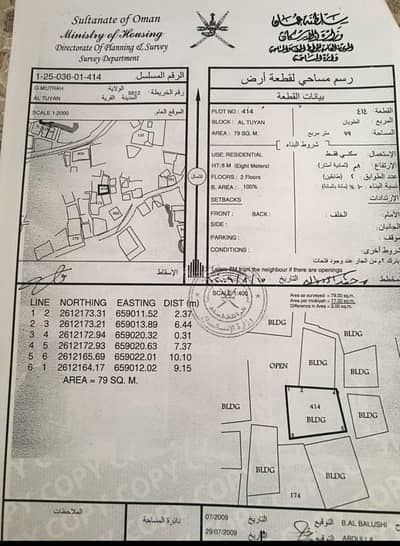 Sultanate of Oman
Ministry of Housing
Directorate Of Planning & Survey
Survey Department
سلطنة عمان
وزارة الإسكان
1-25-036-01-414
الرقم المسلسل
G.MUTRAH
الولاية:
AL TUYAN
المدينة / القرية
رقم الخريطة:
SCALE 1:2000
الموقع العام
الشمال
الإسقاط
رسم مساحي لقطعة أرض
بيانات القطعة
PLOT NO : 414
٤١٤
القطعة
BLOCK : AL TUYAN
الطويان
المربع
AREA : 79 SQ. M.
٧٩ متر مربع
المساحة
شروط البناء
USE: RESIDENTIAL
سكني فقط
الإستعمال:
HT:8 M (Eight Meters)
FLOORS : 2 Floors
٢ (طابقين)
عدد الطوابق:
B. AREA : 100%
نسبة البناء:
SETBACKS
الإرتدادات
FRONT : BACK :
الخلف:
الأمام:
SIDE :
الجانبان:
PARKING :
موقف:
CONDITIONS:
شروط أخرى
from the neighbour if there are openings
LINE NORTHING EASTING DIST (m)
1 2 2612173.31 659011.52 2.37
2 3 2612173.21 659013.89 6.44
3 4 2612172.94 659020.32 0.31
4 5 2612172.93 659020.63 7.37
5 6 2612165.69 659022.01 10.10
6 1 2612164.17 659012.02 9.15
AREA = 79 SQ. M.
SCALE 1:400
Area as surveyed = 79.00 sq.m.
BLDG
BLDG
BLDG
OPEN
414
BLDG
BLDG
BLDG
BLDG
174
COPY COPY COPY
الملاحظات
دائرة المساحة
07/2009
التاريخ
29/07/2009
التاريخ
التوقيع
B.AL BALUSHI
التوقيع
ABDULLA